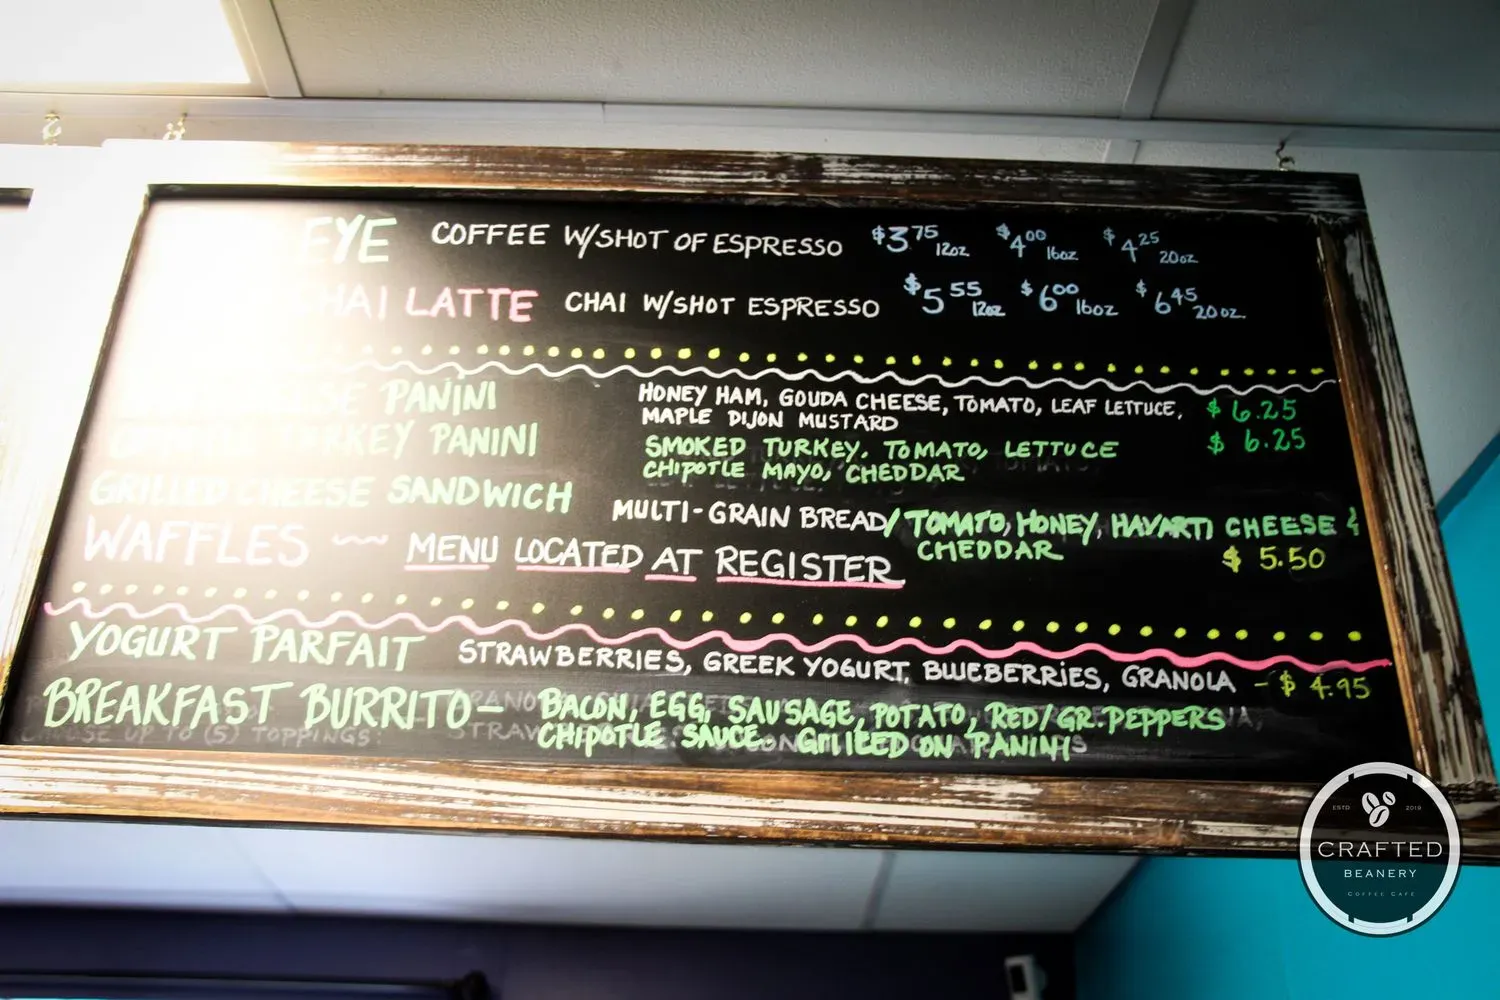 EYE COFFEE W/SHOT OF ESPRESSO $3.75 12oz $4.00 16oz $4.25 20oz
CHAI LATTE CHAI W/SHOT ESPRESSO $5.55 12oz $6.00 16oz $6.45 20oz.
PANINI HONEY HAM, GOUDA CHEESE, TOMATO, LEAF LETTUCE, $6.25
MAPLE DIJON MUSTARD
TURKEY PANINI SMOKED TURKEY. TOMATO, LETTUCE $6.25
CHIPOTLE MAYO, CHEDDAR
GRILLED CHEESE SANDWICH MULTI-GRAIN BREAD/ TOMATO, HONEY, HAVARTI CHEESE &
CHEDDAR $5.50
WAFFLES ~~ MENU LOCATED AT REGISTER
YOGURT PARFAIT STRAWBERRIES, GREEK YOGURT, BLUEBERRIES, GRANOLA - $4.95
BREAKFAST BURRITO - BACON, EGG, SAUSAGE, POTATO, RED/GR. PEPPERS
CHIPOTLE SAUCE. GRILLED ON PANINI
CHOOSE UP TO (5) TOPPINGS:
ESTD 2019
CRAFTED
BEANERY
COFFEE CAFE